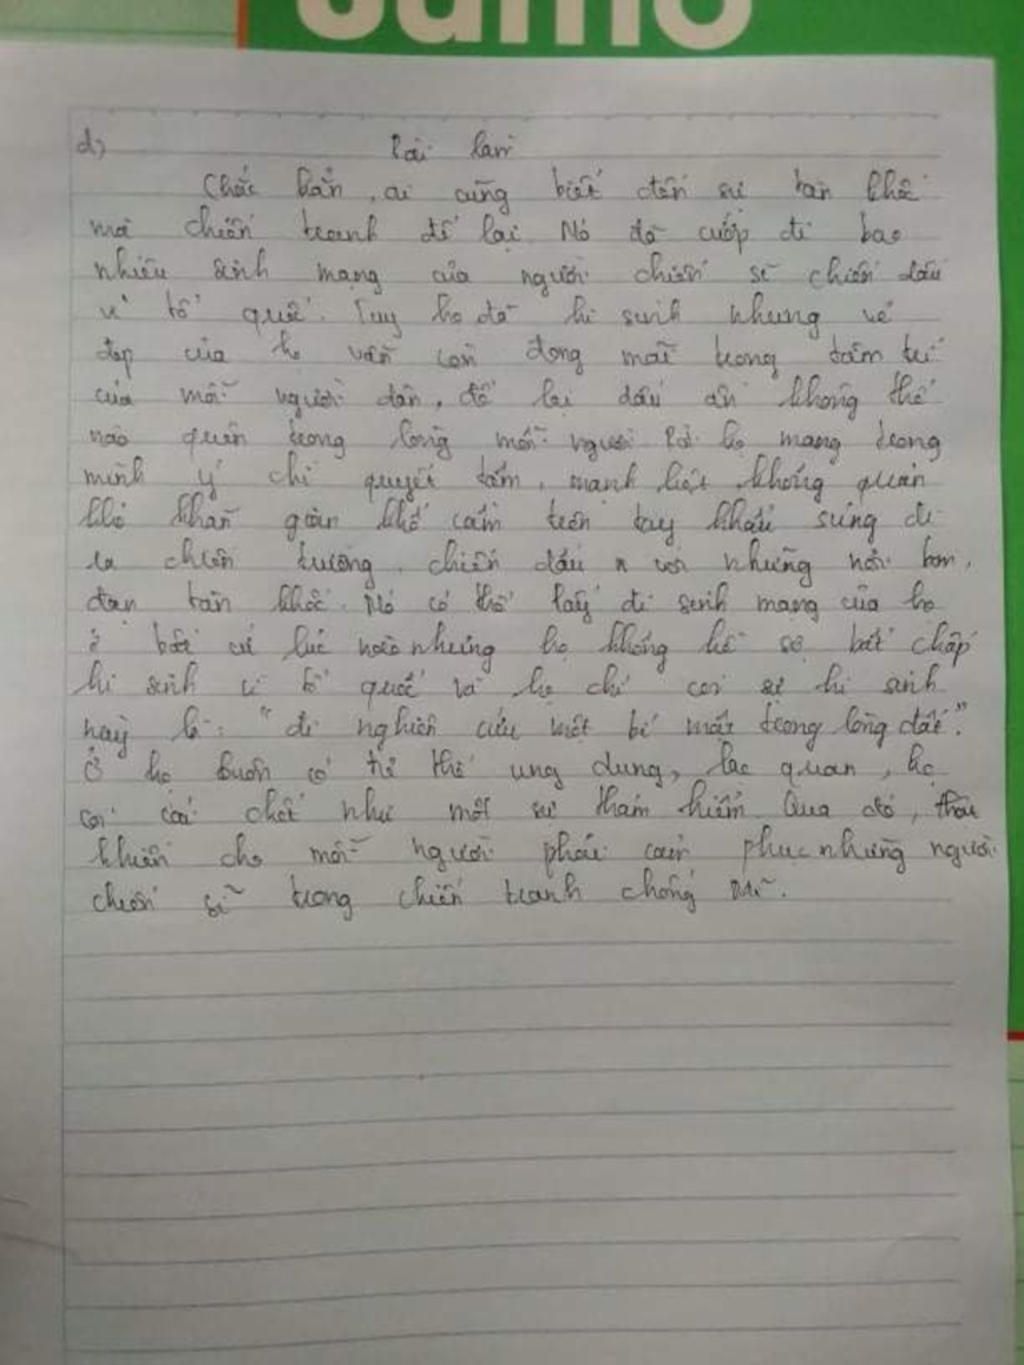 Sumo
d) Bài làm
Chắc hẳn, ai cũng biết đến sự tàn khốc
mà chiến tranh để lại. Nó đã cướp đi bao
nhiêu sinh mạng của người chiến sĩ chiến đấu
vì tổ quốc. Tuy họ đã hi sinh nhưng vẻ
đẹp của họ vẫn còn đọng mãi trong tâm trí
của mỗi người dân, để lại dấu ấn không thể
nào quên trong lòng mỗi người. Bởi họ mang trong
mình ý chí quyết tâm, mạnh liệt không quản
khó khăn gian khổ cầm trên tay khẩu súng đi
ra chiến trường, chiến đấu với những nơi bom,
đạn tàn khốc. Nó có thể lấy đi sinh mạng của họ
ở bất cứ lúc nào nhưng họ không hề sợ bất chấp
hi sinh vì tổ quốc và họ chỉ coi sự hi sinh
này là: "đi nghiên cứu một bí mật trong lòng đất".
Ở họ luôn có tư thế ung dung, lạc quan, họ
coi cái chết như một sự thám hiểm. Qua đó,
khiến cho mỗi người phải cảm phục những người
chiến sĩ trong chiến tranh chống Mĩ.